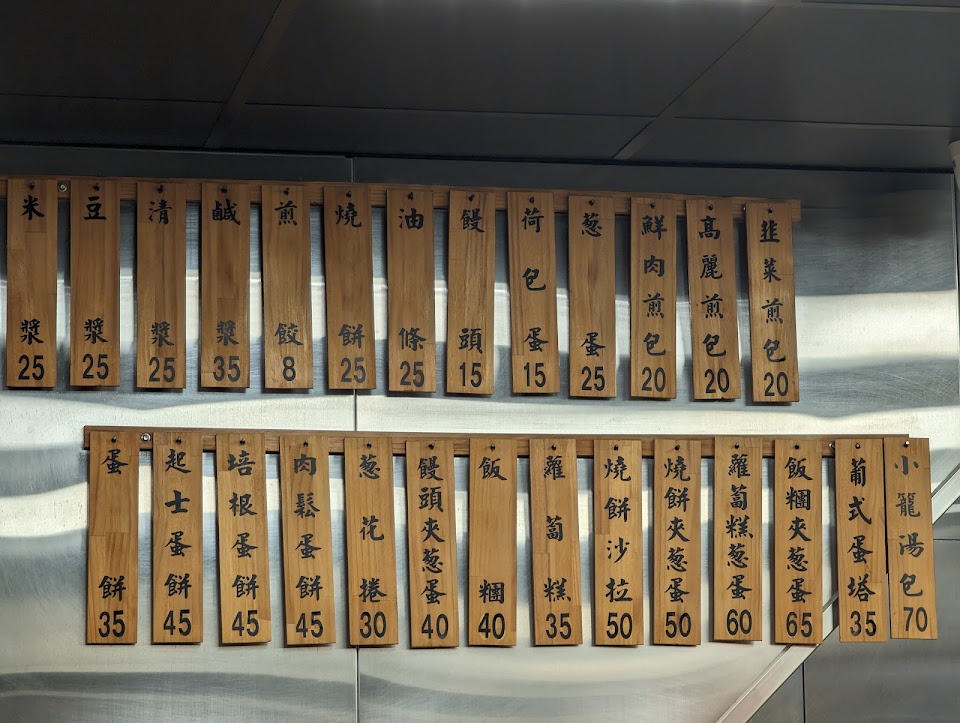 米漿 25
豆漿 25
清漿 25
鹹漿 35
煎餃 8
燒餅 25
油條 25
饅頭 15
荷包蛋 15
葱蛋 25
鮮肉煎包 20
高麗煎包 20
韭菜煎包 20
蛋餅 35
起士蛋餅 45
培根蛋餅 45
肉鬆蛋餅 45
葱花捲 30
饅頭夾葱蛋 40
飯糰 40
蘿蔔糕 35
燒餅沙拉 50
燒餅夾葱蛋 50
蘿蔔糕葱蛋 60
飯糰夾葱蛋 65
葡式蛋塔 35
小籠湯包 70